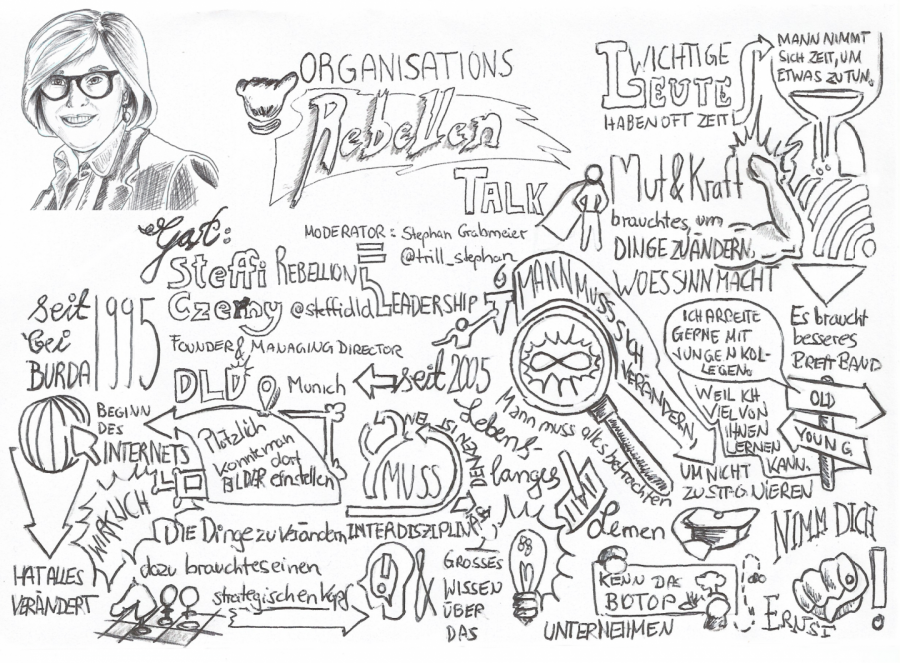 ORGANISATIONS
Rebellen
TALK
MODERATOR: Stephan Grabmeier
@trill_stephan
WICHTIGE
LEUTE
HABEN OFT ZEIT
MANN NIMMT
SICH ZEIT, UM
ETWAS ZU TUN.
Mut & Kraft
braucht es, um
DINGE ZU ÄNDERN,
WO ES SINN MACHT
Gast:
Steffi
Czerny
@steffidld
REBELLION
LEADERSHIP
FOUNDER & MANAGING DIRECTOR
DLD
Munich
seit 2005
seit
bei
BURDA
1995
BEGINN
DES
INTERNETS
HAT ALLES
VERÄNDERT
WIRKLICH
Plötzlich
konnte man
dort
BILDER einstellen
DIE Dinge zu Verändern
dazu braucht es einen
strategischen Kopf
MUSS
INTERDISZIPLINÄR
DENKEN
GROSSES
WISSEN
ÜBER
DAS
UNTERNEHMEN
MANN MUSS SICH VERÄNDERN,
UM NICHT
ZU STAGNIEREN
Mann muss alles betrachten
Lebens-
langes
Lernen
ICH ARBEITE
GERNE MIT
JUNGEN KOL-
LEGEN,
WEIL ICH
VIEL VON
IHNEN
LERNEN
KANN.
Es braucht
besseres
BREITBAND
OLD
YOUNG
KENN DAS
BIOTOP
NIMM DICH
ERNST!